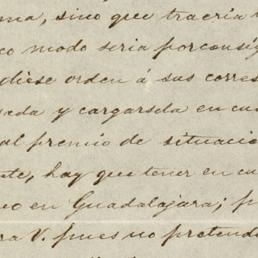 ma, sino que traeria
co modo seria por consig
diese orden á sus corres
ada y cargarsela en cu
al premio de situacio
te, hay que tener en cu
o en Guadalajara; p
ra V. pues no pretend